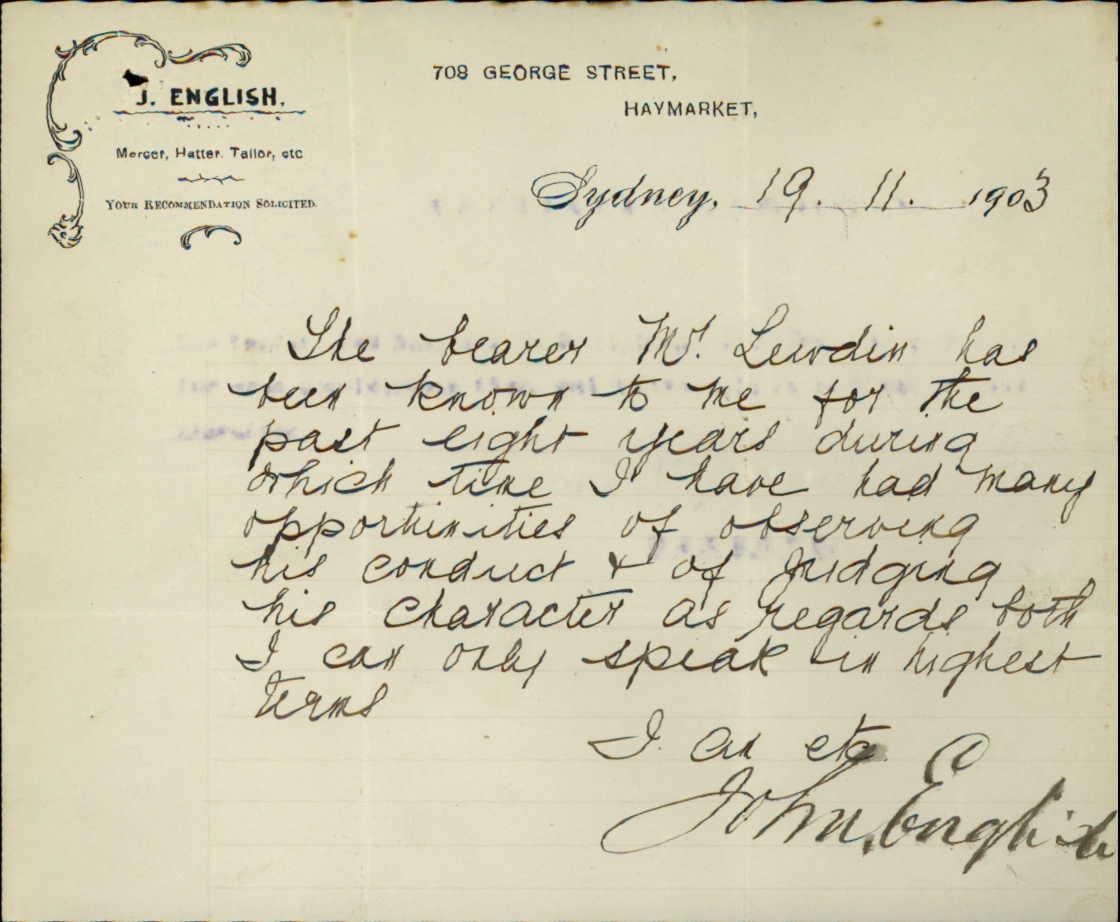 J. ENGLISH.
Mercer, Hatter, Tailor, etc
YOUR RECOMMENDATION SOLICITED.
708 GEORGE STREET,
HAYMARKET,
Sydney, 19. 11. 1903
The bearer Mr. Lewdin has
been known to me for the
past eight years during
which time I have had many
opportunities of observing
his conduct & of judging
his character as regards both
I can only speak in highest
terms
I am etc
John English